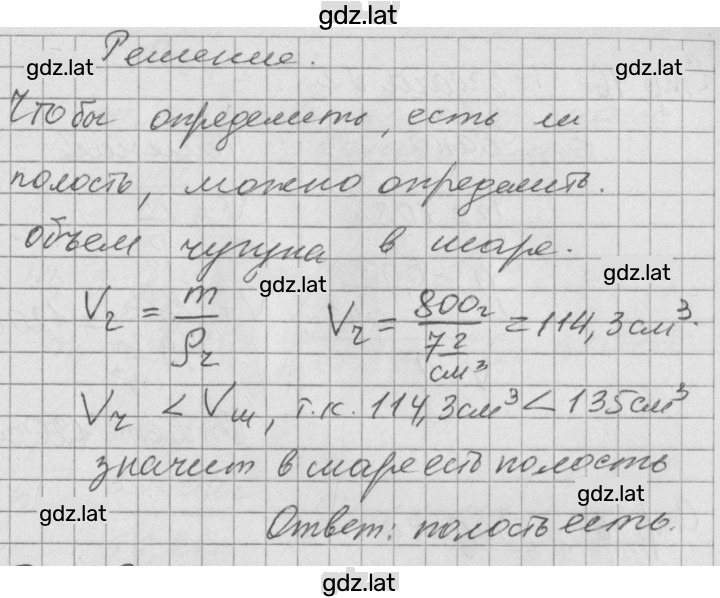 gdz.lat
Решение.
gdz.lat gdz.lat
Чтобы определить, есть ли
полость, можно определить.
объем чугуна в шаре.
gdz.lat gdz.lat
Vч = m/ρч Vч = 800г/(7 г/см³) = 114,3 см³.
Vч < Vш, т.к. 114,3см³ < 135см³
значит в шаре есть полость
gdz.lat gdz.lat
Ответ: полость есть.
gdz.lat